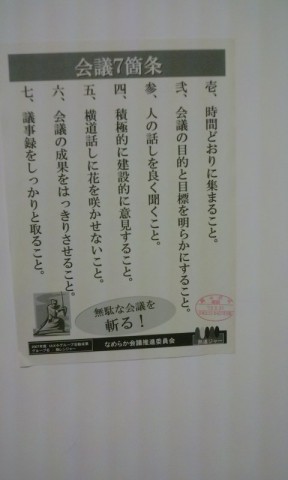 会議7箇条
壱、時間どおりに集まること。
弐、会議の目的と目標を明らかにすること。
参、人の話しを良く聞くこと。
四、積極的に建設的に意見すること。
五、横道話しに花を咲かせないこと。
六、会議の成果をはっきりさせること。
七、議事録をしっかりと取ること。
無駄な会議を
斬る！
なめらか会議推進委員会